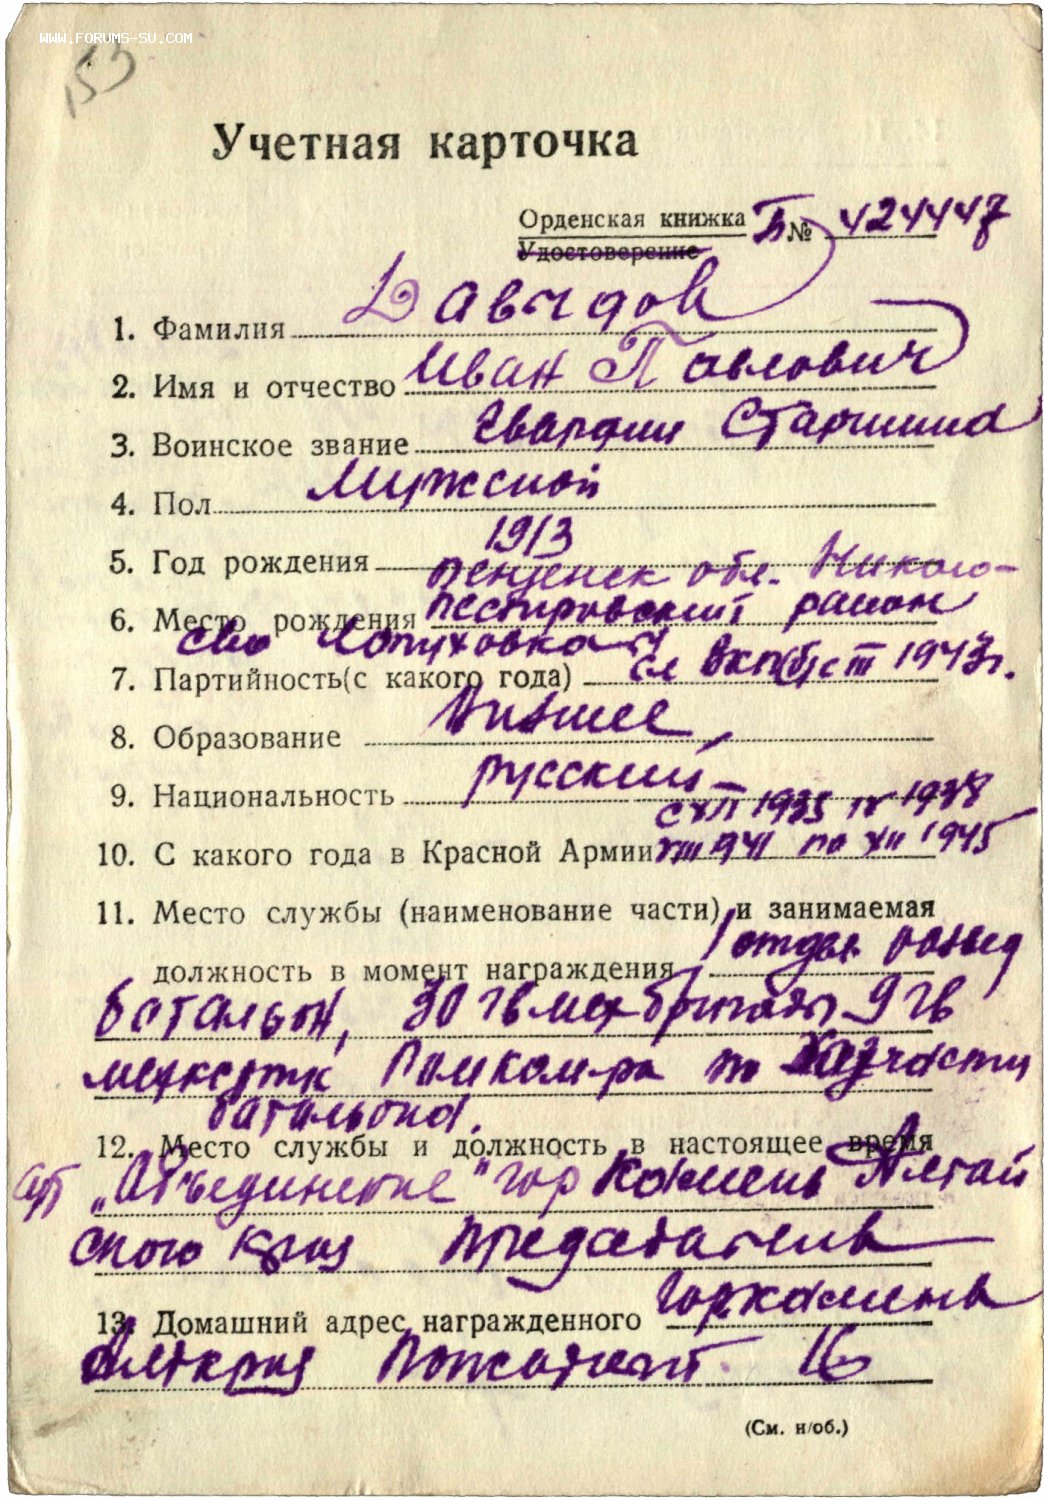 WWW.FORUMS-SU.COM
153
Учетная карточка
Орденская книжка Б № 424447
Удостоверение
1. Фамилия Давыдов
2. Имя и отчество Иван Павлович
3. Воинское звание гвардии Старшина
4. Пол Мужской
5. Год рождения 1913
пензенск обл. Николо-
6. Место рождения пестровский район
село
7. Партийность(с какого года) ВКП(б) с III 1943г.
8. Образование Низшее
9. Национальность русский
с XII 1935 IV 1938
10. С какого года в Красной Армии VIII 1941 по XII 1945
11. Место службы (наименование части) и занимаемая
должность в момент награждения 1 отдел развед
батальон, 30 гв мехбригады 9 гв
мехкорп Помком-ра по хозчасти
батальона.
12. Место службы и должность в настоящее время
"Объединение" гор Камень Алтай
ского края Председатель
13. Домашний адрес награжденного Гор Камень
Алткрая 16
(См. н/об.)